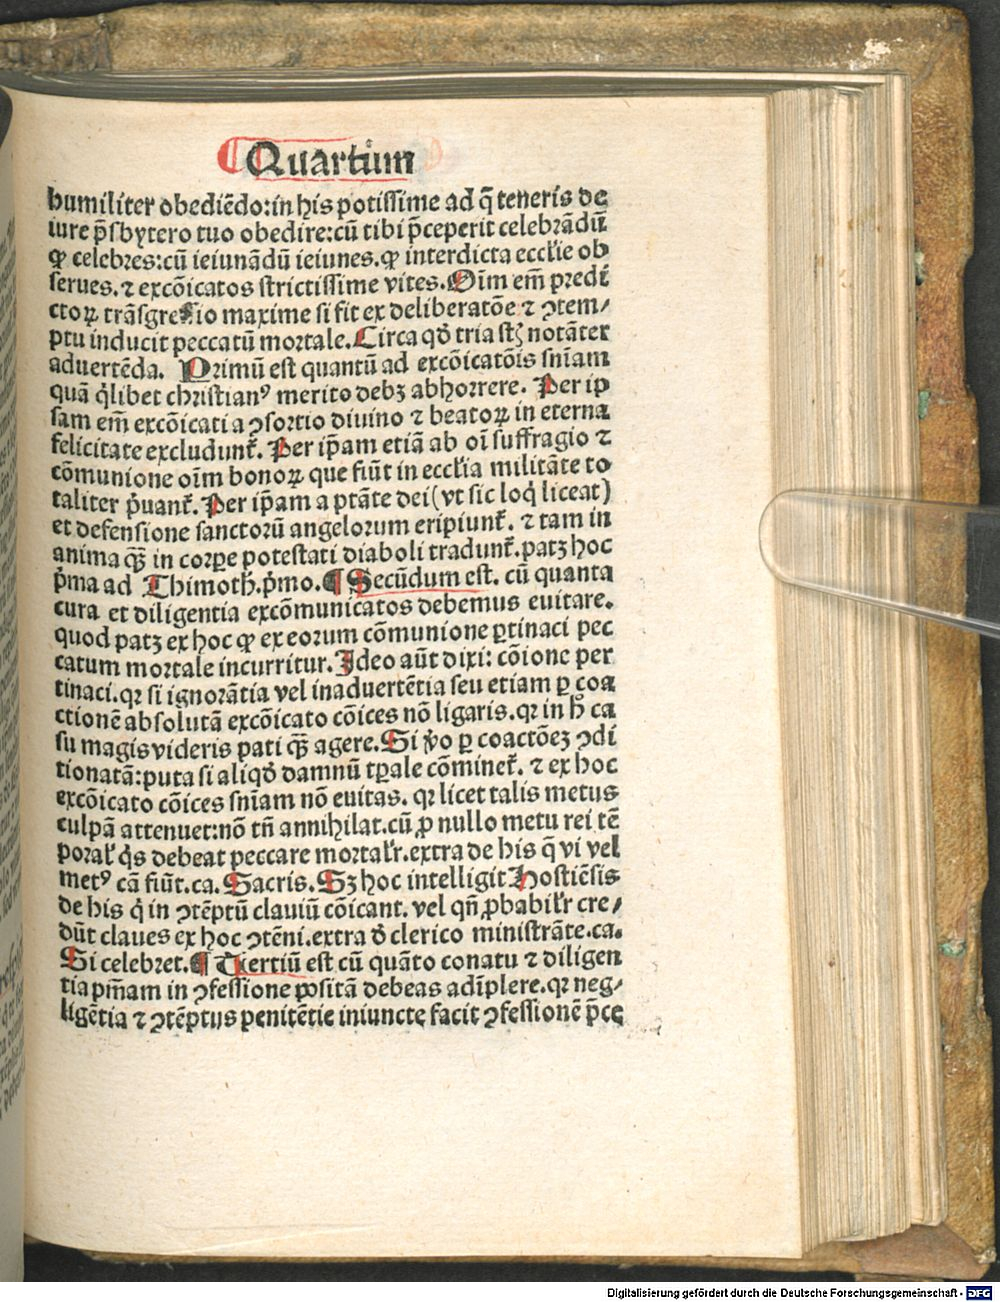 Quartum
humiliter obediēdo: in his potissime ad q̄ teneris de
iure p̄sbytero tuo obedire: cū tibi p̄ceperit celebrādū
ꝙ celebres: cū ieiunādū ieiunes. ꝙ interdicta ecclīe ob
serues. ⁊ excōicatos strictissime vites. Oīm em̄ predi
ctoꝝ trāsgressio maxime si fit ex deliberatōe ⁊ ꝯtem⸗
ptu inducit peccatū mortale. Circa qđ tria st̄ notāter
aduertēda. Primū est quantū ad excōicatōis sn̄iam
quā q̇libet christianꝰ merito debꝫ abhorrere. Per ip
sam em̄ excōicati a ꝯsortio diuino ⁊ beatoꝝ in eterna
felicitate excludunt̄. Per ip̄am etiā ab oī suffragio ⁊
cōmunione oīm bonoꝝ que fiūt in ecclīa militāte to
taliter ṗuant̄. Per ip̄am a ptāte dei (vt sic loq̇ liceat)
et defensione sanctorū angelorum eripiunt̄. ⁊ tam in
anima qꝫ̄ in corꝑe potestati diaboli tradunt̄. patꝫ hoc
ṗma ad Thimoth̄. ṗmo. ¶ Secūdum est. cū quanta
cura et diligentia excōmunicatos debemus euitare.
quod patꝫ ex hoc ꝙ ex eorum cōmunione ꝑtinaci pec
catum mortale incurritur. Ideo aūt dixi: cōione per
tinaci. qꝛ si ignorātia vel inaduertētia seu etiam ꝑ coa
ctionē absolutā excōicato cōices nō ligaris. qꝛ in h̄ ca
su magis videris pati qꝫ̄ agere. Si v̇o ꝑ coactōeꝫ ꝯdi
tionatā: puta si aliqđ damnū tꝑale cōminet̄. ⁊ ex hoc
excōicato cōices sn̄iam nō euitas. qꝛ licet talis metus
culpā attenuet: nō tn̄ annihilat. cū ꝓ nullo metu rei tē
poral̄ q̇s debeat peccare mortal̄r. extra de his q̄ vi vel
metꝰ cā fiūt. ca. Sacris. Sꝫ hoc intelligit Hostiēsis
de his q̇ in ꝯtēptū clauiū cōicant. vel qn̄ ꝓbabil̄r cre⸗
dūt claues ex hoc ꝯtēni. extra đ clerico ministrāte. ca.
Si celebret. ¶ Tertiū est cū quāto conatu ⁊ diligen
tia pn̄iam in ꝯfessione positā debeas adīplere. qꝛ neg⸗
ligētia ⁊ ꝯtēptus penitētie iniuncte facit ꝯfessionē p̄ce
Digitalisierung gefördert durch die Deutsche Forschungsgemeinschaft - DFG